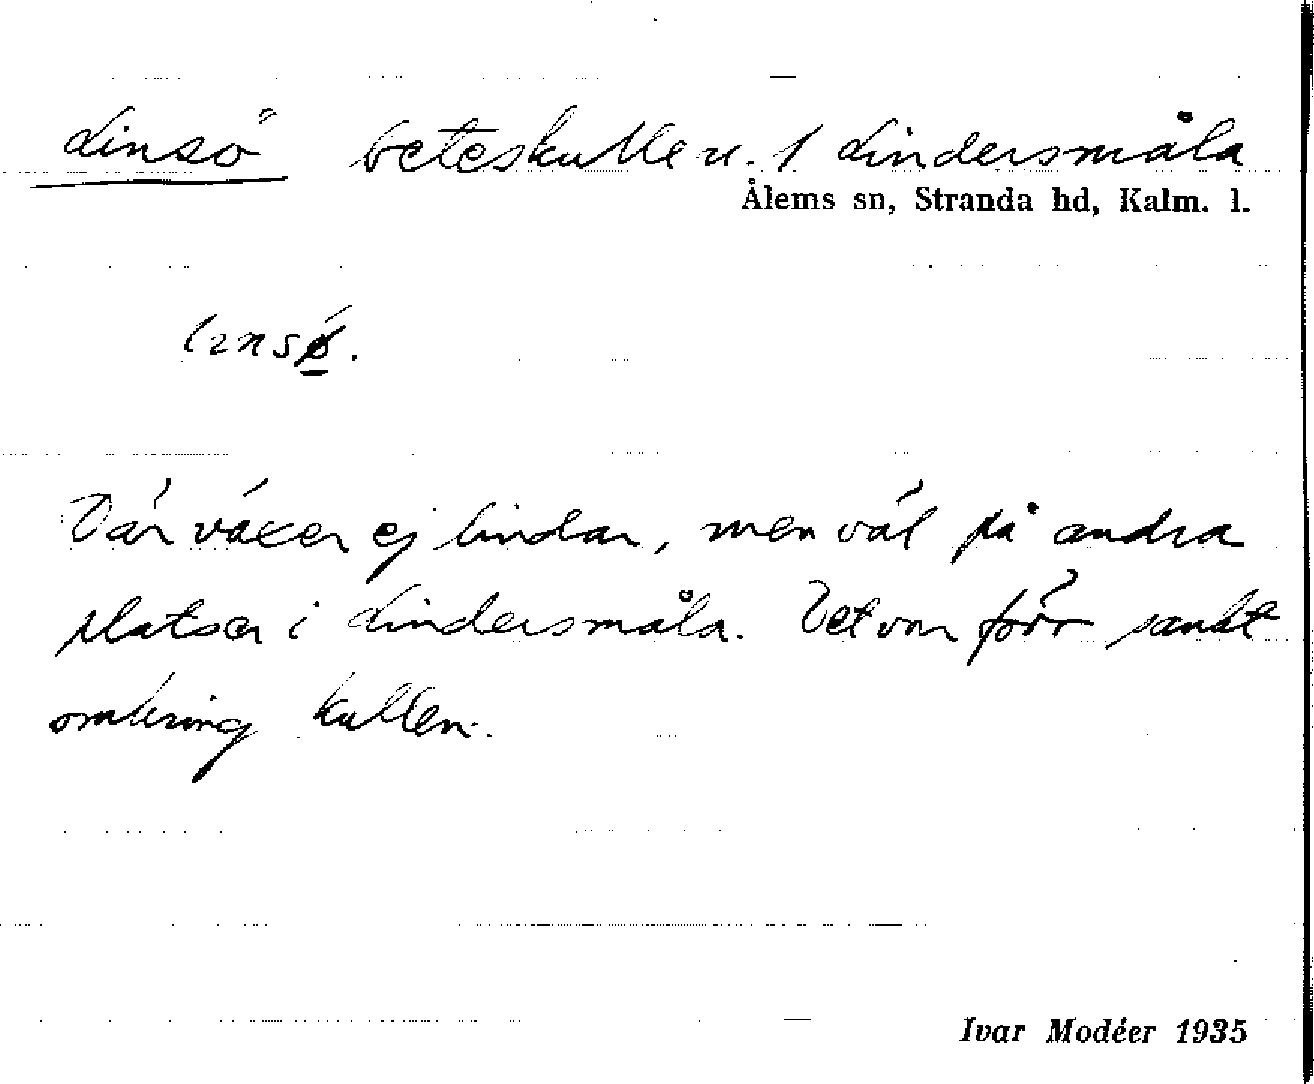 Linsö beteskulle u. 1 Lindersmåla
Ålems sn, Stranda hd, Kalm. l.
Där växer ej lindar, men väl på andra
platser i Lindersmåla. Det var förr sankt
omkring kullen.
Ivar Modéer 1935